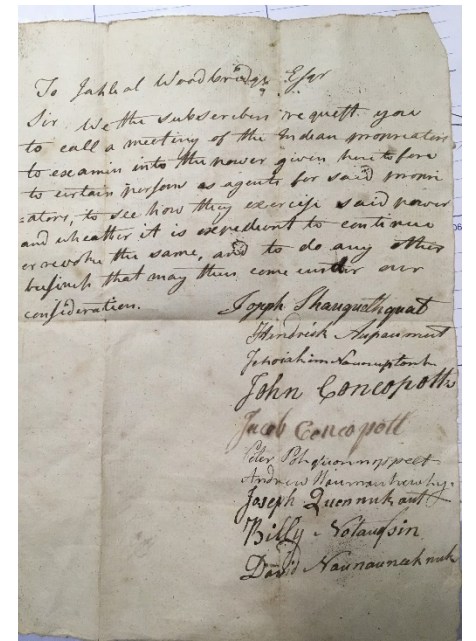 To Jahleal Woodbridge Esqr
Sir We the subscribers request you
to call a meeting of the Indian proprieators
to examin into the power given heretofore
to certain persons as agents for said propri
=ators, to see how they exercise said power
and wheather it is expedient to continue
or revoke the same, and to do any other
business that may then come under our
consideration.
Joseph Shauquethquat
Hendrick Aupaumut
Jehoiakim Naunuptonk
John Concopott
Jacob Concopott
Peter Pohquonnoppeet
Andrew
Joseph Quennukaut
Billy Notaugsin
David Naunauneeknuk